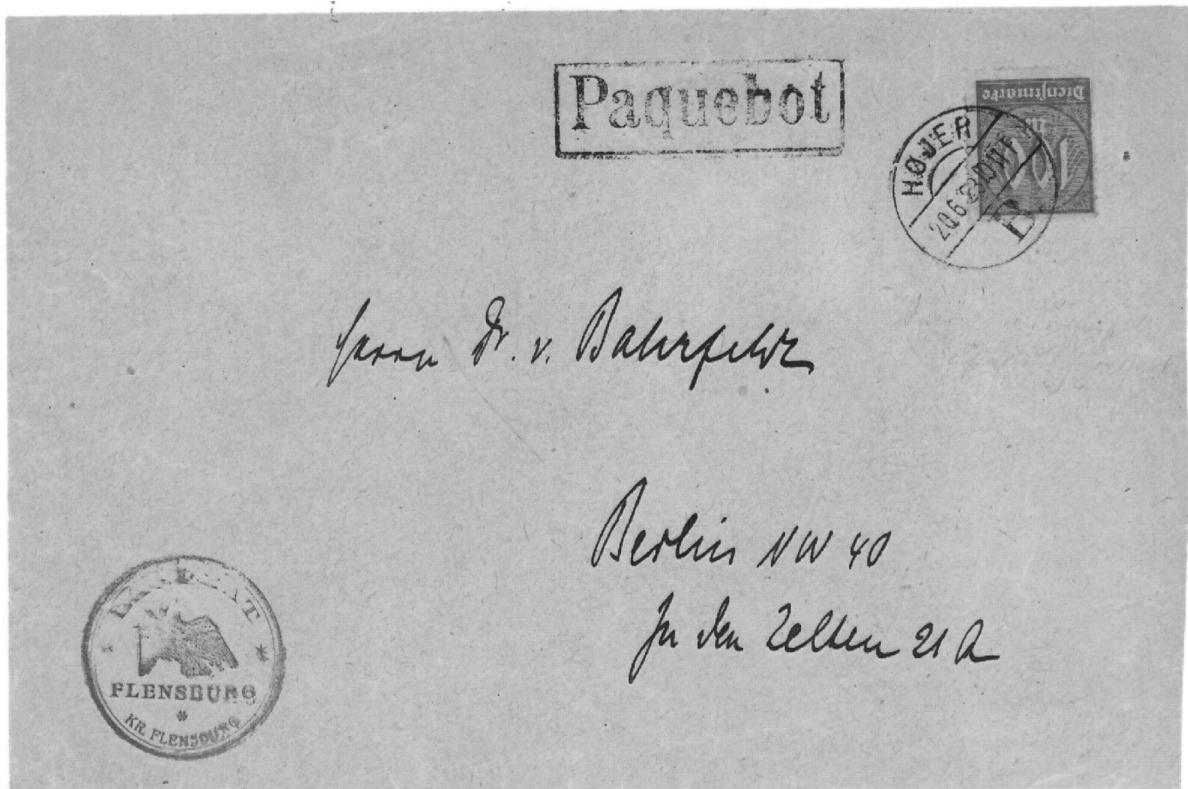 Paquebot
Dienstmarke
100
HØJER
20.6.23
B
Herrn Dr. v. Bahrfeldt
Berlin NW 40
In den Zelten 21 A
FLENSBURG
KR. FLENSBURG